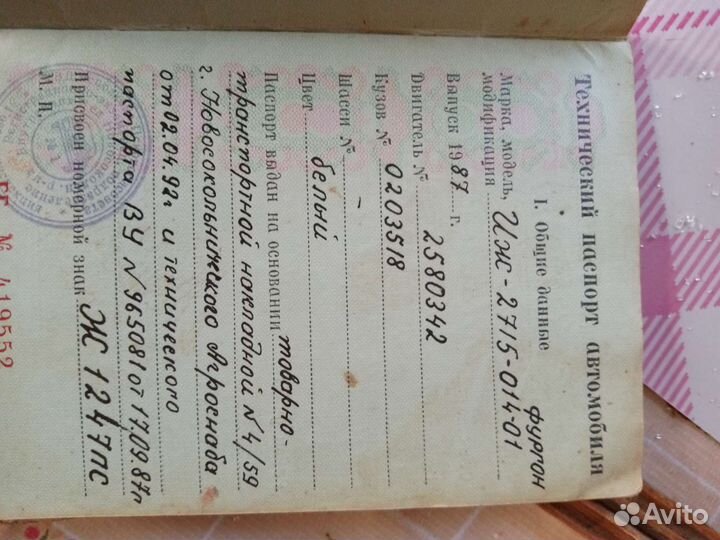 Технический паспорт автомобиля
I. Общие данные
фургон
Марка, модель,
модификация Иж-2715-014-01
Выпуск 1987 г.
Двигатель № 2580342
Кузов № 0203518
Шасси № –
Цвет белый
Паспорт выдан на основании товарно-
транспортной накладной N 4/59
г. Новосокольнического Агроснаба
от 02.04.92г и технического
паспорта ВУ N 965081 от 17.09.87г
Присвоен номерной знак Ж 1247 пс
М. П.
№ 419552
Avito